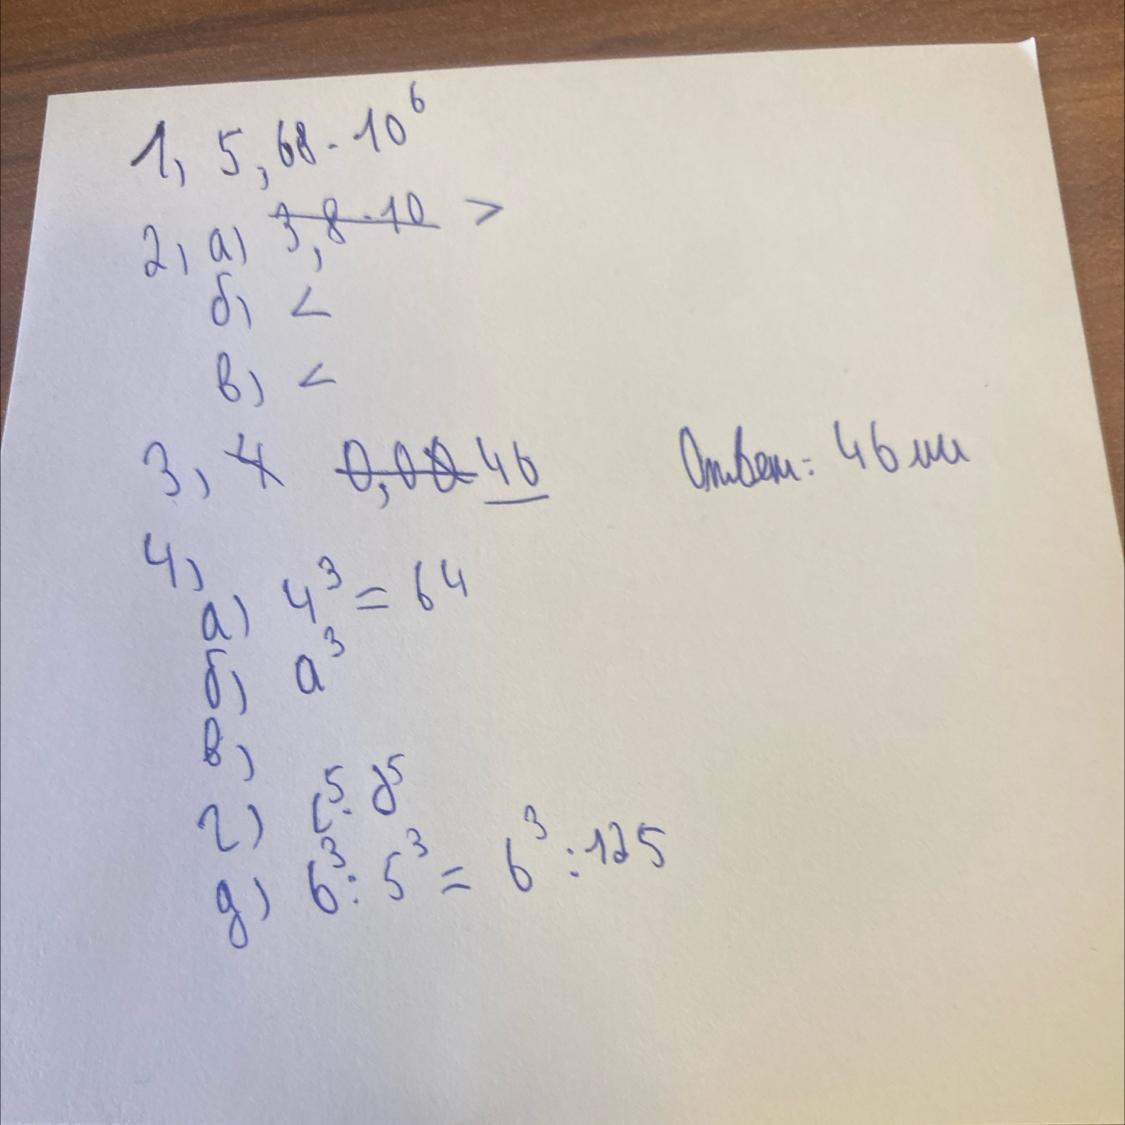 1, 5,68 · 10⁶
2, а) 3,8 · 10 >
б) <
в) <
3, 4 0,00 46 Ответ: 46 мм
4,
а) 4³ = 64
б) a³
в)
г) c⁵ · d⁵
д) 6³ : 5³ = 6³ : 125